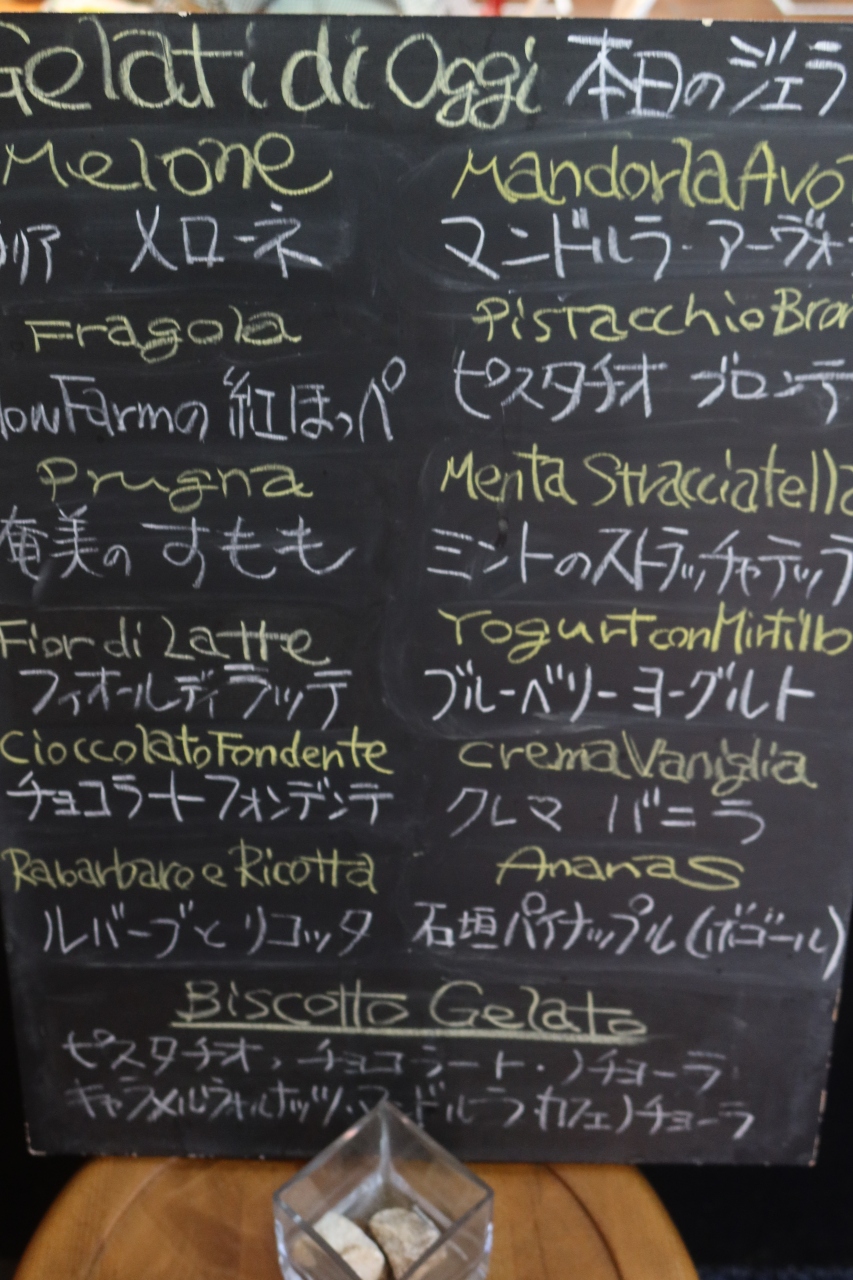 Gelati di Oggi 本日のジェラ
Melone
メローネ
Fragola
Farmの 紅ほっぺ
Prugna
奄美の すもも
Fior di Latte
フィオールディラッテ
Cioccolato Fondente
チョコラートフォンデンテ
Rabarbaro e Ricotta
ルバーブとリコッタ
Mandorla Avo
マンドルラ・アーヴォ
Pistacchio Bron
ピスタチオ ブロンテ
Menta Stracciatella
ミントのストラッチャテッラ
Yogurt con Mirtillo
ブルーベリーヨーグルト
Crema Vaniglia
クレマ バニラ
Ananas
石垣パイナップル(ボゴール)
Biscotto Gelato
ピスタチオ、チョコラート・ノチョーラ
キャラメルウォルナッツ・マンドルラ カフェノチョーラ